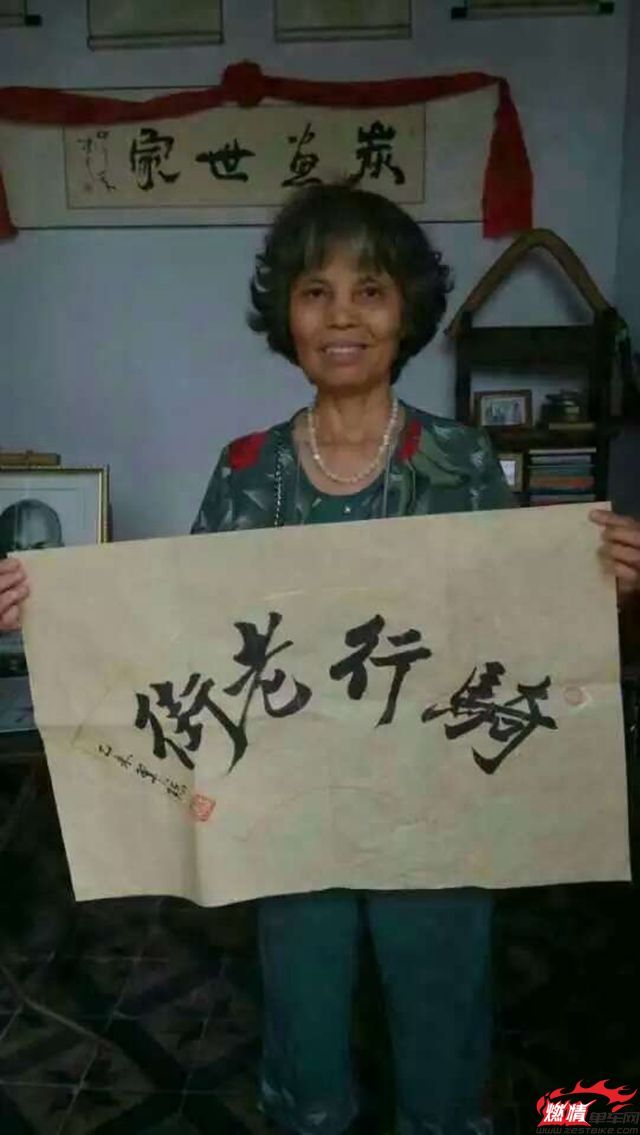 炭画世家
騎行老街
乙未
燃情单车网
WWW.ZESTBIKE.COM